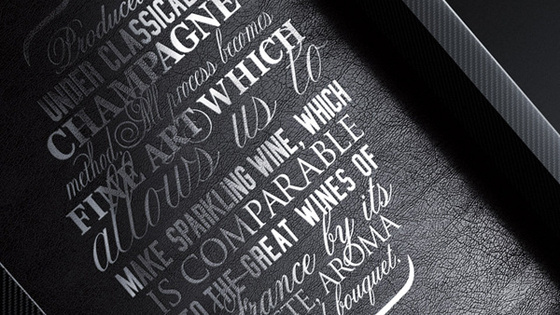 Produced
UNDER CLASSICAL
CHAMPAGNE
method, M process becomes
FINE ART WHICH
allows us to
MAKE SPARKLING WINE, WHICH
IS COMPARABLE
TO THE GREAT WINES OF
France by its
TE, AROMA
bouquet.